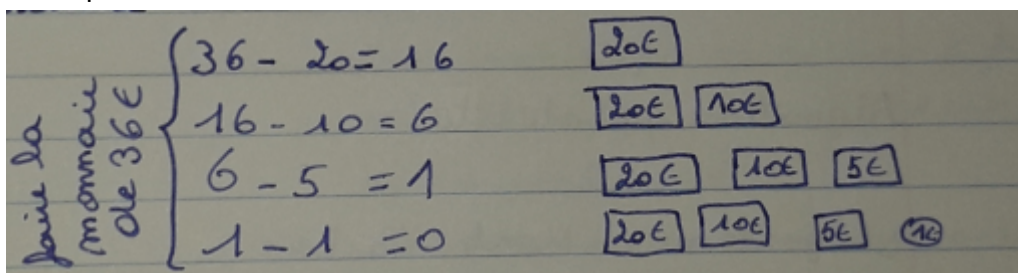 faire la
monnaie
de 36€
36 - 20 = 16 20€
16 - 10 = 6 20€ 10€
6 - 5 = 1 20€ 10€ 5€
1 - 1 = 0 20€ 10€ 5€ 1€